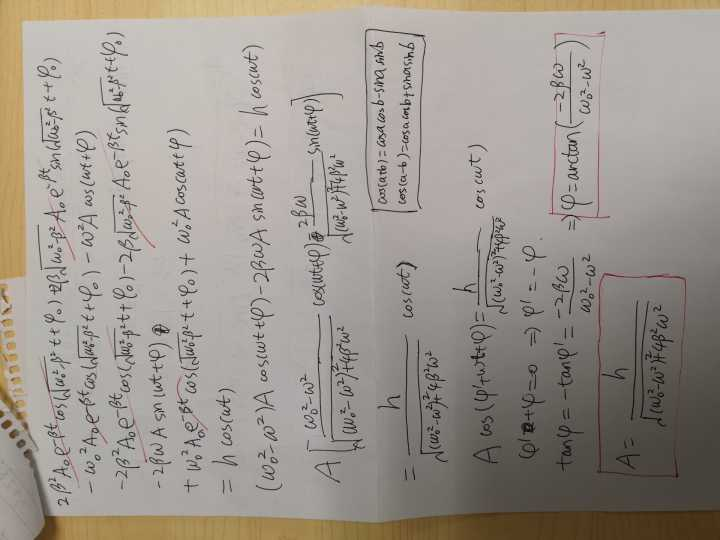 2β²A₀e^{-βt}cos(√(ω₀²-β²)t+φ₀)+2β√(ω₀²-β²)A₀e^{-βt}sin(√(ω₀²-β²)t+φ₀)
-ω₀²A₀e^{-βt}cos(√(ω₀²-β²)t+φ₀)-ω²A cos(ωt+φ)
-2β²A₀e^{-βt}cos(√(ω₀²-β²)t+φ₀)-2β√(ω₀²-β²)A₀e^{-βt}sin(√(ω₀²-β²)t+φ₀)
-2βωA sin(ωt+φ)
+ω₀²A₀e^{-βt}cos(√(ω₀²-β²)t+φ₀)+ω₀²A cos(ωt+φ)
=h cos(ωt)
(ω₀²-ω²)A cos(ωt+φ)-2βωA sin(ωt+φ)=h cos(ωt)
A[(ω₀²-ω²)/√((ω₀²-ω²)²+4β²ω²) cos(ωt+φ)-2βω/√((ω₀²-ω²)²+4β²ω²) sin(ωt+φ)]
=h/√((ω₀²-ω²)²+4β²ω²) cos(ωt)
cos(a+b)=cosacosb-sinasinb
cos(a-b)=cosacosb+sinasinb
A cos(φ'+ωt+φ)=h/√((ω₀²-ω²)²+4β²ω²) cos(ωt)
φ'+φ=0 ⇒ φ'=-φ.
tanφ=-tanφ'=-2βω/(ω₀²-ω²) ⇒ φ=arctan(-2βω/(ω₀²-ω²))
A=h/√((ω₀²-ω²)²+4β²ω²)